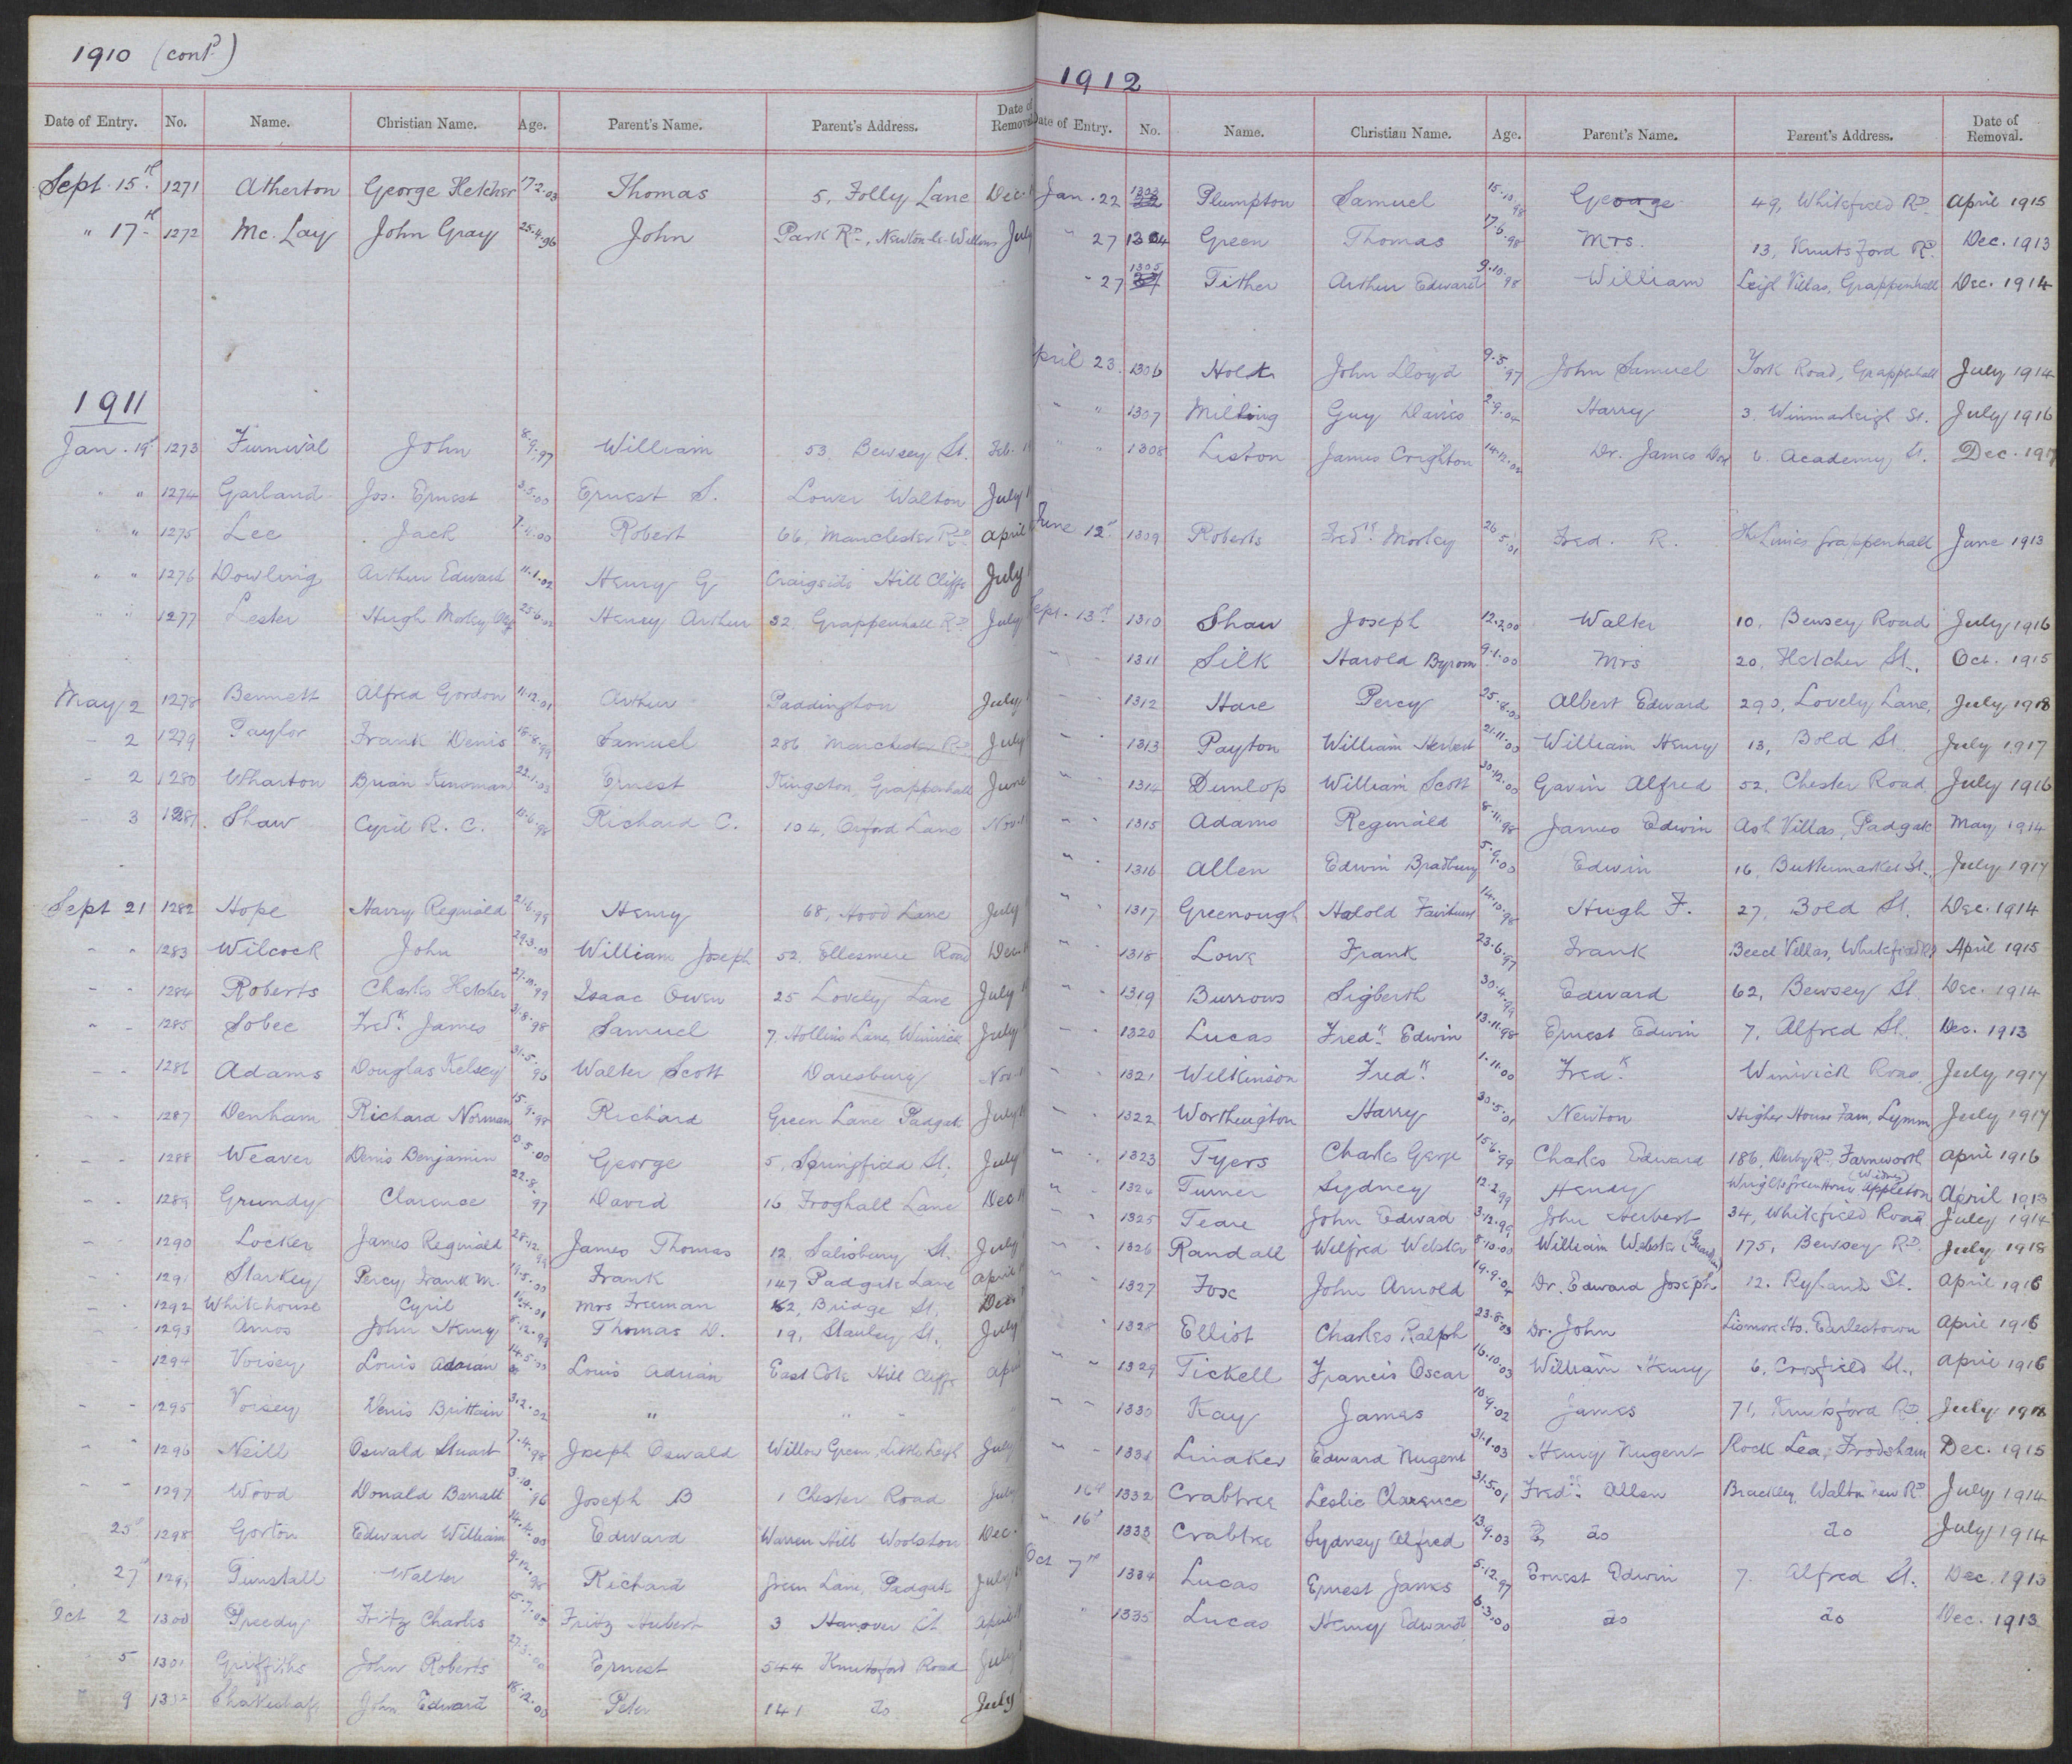 1910 (contd)
Date of Entry. No. Name. Christian Name. Age. Parent's Name. Parent's Address. Date of Removal.
Sept. 15th 1271 Atherton George Fletcher 17.2.03 Thomas 5, Folly Lane Dec.
" 17th 1272 Mc. Lay John Gray 25.4.96 John Park Rd, Newton-le-Willows July
1911
Jan. 19th 1273 Furnival John 8.9.97 William 53, Bewsey St. Feb.
" " 1274 Garland Jos. Ernest 3.5.00 Ernest S. Lower Walton July
" 1275 Lee Jack 7.4.00 Robert 66, Manchester Rd April
" " 1276 Dowling Arthur Edward 11.1.02 Henry G Craigside Hill Cliffe July
" " 1277 Lester Hugh Morley 25.6. Henry Arthur 32, Grappenhall Rd July
May 2 1278 Bennett Alfred Gordon 11.12.01 Arthur Paddington July
- 2 1279 Taylor Frank Denis 18.8.99 Samuel 286 Manchester Rd July
- 2 1280 Wharton Brian 22.1.03 Ernest Kingston, Grappenhall June
- 3 1281 Shaw Cyril R. C. 13.6.98 Richard C. 104, Orford Lane Nov.
Sept 21 1282 Hope Harry Reginald 21.6.99 Henry 68, Hood Lane July
" " 1283 Wilcock John 29.3.00 William Joseph 52, Ellesmere Road Dec.
- - 1284 Roberts Charles Fletcher 27.11.99 Isaac Owen 25 Lovely Lane July
" - 1285 Sobee Fredk. James 31.8.98 Samuel 7, Hollins Lane, Winwick July
- - 1286 Adams Douglas Kelsey 31.5.96 Walter Scott Daresbury Nov.
- - 1287 Denham Richard Norman 15.9.98 Richard Green Lane Padgate July
- - 1288 Weaver Denis Benjamin 13.5.00 George 5, Springfield St. July
- - 1289 Grundy Clarence 22.8.97 David 16 Froghall Lane Dec
- - 1290 Locker James Reginald 28.12.99 James Thomas 12, Salisbury St. July
- - 1291 Starkey Percy Frank M. 19.5.00 Frank 147 Padgate Lane April
- - 1292 Whitehouse Cyril 1.4.01 Mrs Freeman 62, Bridge St. Dec
- - 1293 Amos John Henry 8.12.98 Thomas D. 19, Stanley St. July
- 1294 Voisey Louis Adrian 14.5.00 Louis Adrian East Cote Hill Cliffe Apri
- - 1295 Voisey Denis Brittain 3.12.02 " " -
- " 1296 Neill Oswald Stuart 7.4.98 Joseph Oswald Willow Green, Little Leigh July
- - 1297 Wood Donald Barratt 3.10.96 Joseph B 1 Chester Road July
25th 1298 Gorton Edward William 14.4.00 Edward Warren Hill Woolston Dec.
27th 1299 Tunstall Walter 9.12.98 Richard Green Lane, Padgate July
Oct 2 1300 Speedy Fritz Charles 15.7.00 Fritz Hubert 3 Hanover St April
5 1301 Griffiths John Roberts 27.3.00 Ernest 544 Knutsford Road July
" 9 1302 Shakeshaft John Edward 18.12.00 Peter 141 do July
1912
Date of Entry. No. Name. Christian Name. Age. Parent's Name. Parent's Address. Date of Removal.
Jan. 22 1303 Plumpton Samuel 15.10.98 George 49, Whitefield Rd April 1915
" 27 1304 Green Thomas 17.6.98 Mrs. 13, Knutsford Rd. Dec. 1913
" 27 1305 Tither Arthur Edward 9.10.98 William Leigh Villas, Grappenhall Dec. 1914
April 23. 1306 Holt John Lloyd 9.5.97 John Samuel York Road, Grappenhall July 1914
" " 1307 Milling Guy Davies 2.9.04 Harry 3 Winmarleigh St. July 1916
" " 1308 Liston James Crighton 14.12.02 Dr. James 6. Academy St. Dec. 191
June 12th 1309 Roberts Fredk. Morley 26.5.01 Fred. R. The Limes Grappenhall June 1913
Sept. 13th 1310 Shaw Joseph 12.2.00 Walter 10, Bewsey Road July 1916
" 1311 Silk Harold Byrom 9.1.00 Mrs 20, Fletcher St. Oct. 1915
- - 1312 Hare Percy 25.4.00 Albert Edward 290, Lovely Lane, July 1918
" - 1313 Payton William Herbert 21.11.00 William Henry 13, Bold St. July 1917
" " 1314 Dunlop William Scott 30.12.00 Gavin Alfred 52, Chester Road July 1916
" " 1315 Adams Reginald 8.11.98 James Edwin Ash Villas, Padgate May 1914
" " 1316 Allen Edwin Bradbury 5.9.00 Edwin 16, Buttermarket St. July 1917
" " 1317 Greenough Harold Fairhurst 14.12.98 Hugh F. 27, Bold St. Dec. 1914
" " 1318 Lowe Frank 23.6.97 Frank Beech Villas, Whitefield Rd April 1915
" " 1319 Burrows Sigberth 30.4.99 Edward 62, Bewsey St. Dec. 1914
- " 1320 Lucas Fredk. Edwin 13.11.98 Ernest Edwin 7, Alfred St. Dec. 1913
" " 1321 Wilkinson Fredk. 1.11.00 Fredk. Winwick Road July 1917
" " 1322 Worthington Harry 30.5.01 Newton Higher House Farm, Lymm July 1917
" " 1323 Tyers Charles George 15.6.99 Charles Edward 186, Derby Rd. Farnworth (Widnes) April 1916
" " 1324 Turner Sydney 12.2.99 Henry Wright's Green House Appleton April 1913
" " 1325 Teare John Edward 3.12.99 John Herbert 34, Whitefield Road July 1914
" " 1326 Randall Wilfred Webster 8.10.00 William Webster (Guardian) 175, Bewsey Rd. July 1918
" " 1327 Fox John Arnold 19.9.04 Dr. Edward Joseph 12. Ryland St. April 1916
" 1328 Elliot Charles Ralph 23.8.03 Dr. John Lismore Ho. Earlestown April 1916
" " 1329 Tickell Francis Oscar 16.10.03 William Henry 6, Crosfield St. April 1916
" " 1330 Kay James 10.9.02 James 71, Knutsford Rd. July 1918
" - 1331 Linaker Edward Nugent 31.1.03 Henry Nugent Rock Lea, Frodsham Dec. 1915
16th 1332 Crabtree Leslie Clarence 31.5.01 Fredk. Allen Brackley, Walton New Rd July 1914
" 16th 1333 Crabtree Sydney Alfred 13.9.03 do do July 1914
Oct 7th 1334 Lucas Ernest James 5.12.97 Ernest Edwin 7. Alfred St. Dec. 1913
" 1335 Lucas Henry Edward 6.3.00 do do Dec. 1913